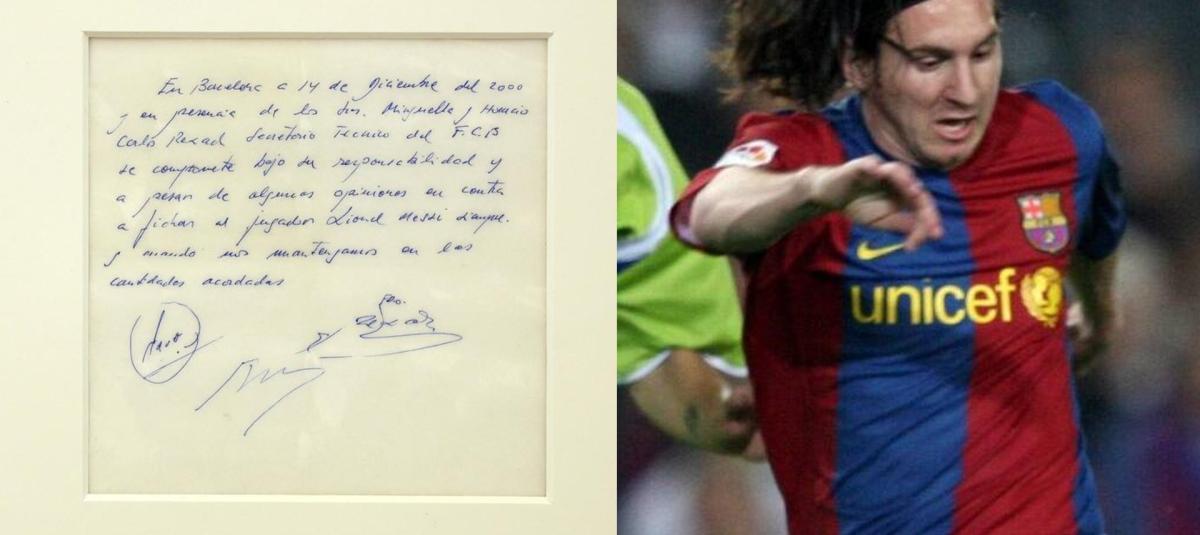 En Barcelona a 14 de Diciembre del 2000
y en presencia de los Srs. Minguella y Horacio
Carles Rexach Secretario Tecnico del F.C.B
se compromete bajo su responsabilidad y
a pesar de algunas opiniones en contra
a fichar al jugador Lionel Messi siempre
y cuando nos mantengamos en las
cantidades acordadas
unicef